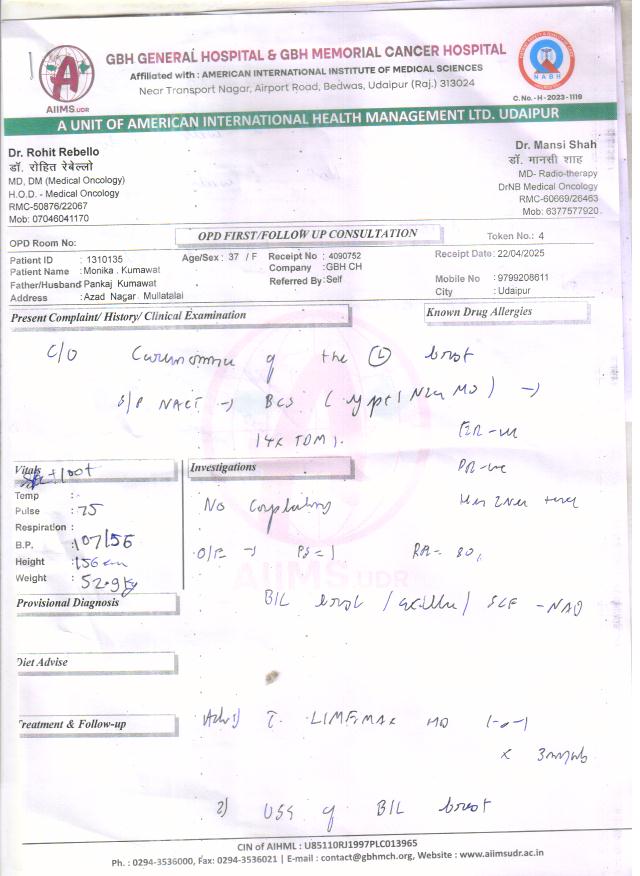 GBH GENERAL HOSPITAL & GBH MEMORIAL CANCER HOSPITAL
Affiliated with : AMERICAN INTERNATIONAL INSTITUTE OF MEDICAL SCIENCES
Near Transport Nagar, Airport Road, Bedwas, Udaipur (Raj.) 313024
AIIMS.UDR
NABH
C. No.- H - 2023 - 1119
A UNIT OF AMERICAN INTERNATIONAL HEALTH MANAGEMENT LTD. UDAIPUR
Dr. Rohit Rebello
डॉ. रोहित रेबेल्लो
MD, DM (Medical Oncology)
H.O.D. - Medical Oncology
RMC-50876/22067
Mob: 07046041170
Dr. Mansi Shah
डॉ. मानसी शाह
MD- Radio-therapy
DrNB Medical Oncology
RMC-60669/26463
Mob: 6377577920
OPD Room No:
OPD FIRST/FOLLOW UP CONSULTATION
Token No.: 4
Patient ID : 1310135 Age/Sex : 37 / F Receipt No : 4090752 Receipt Date: 22/04/2025
Patient Name : Monika . Kumawat Company : GBH CH
Father/Husband: Pankaj Kumawat Referred By : Self Mobile No : 9799208611
Address : Azad Nagar Mullatalai City : Udaipur
Present Complaint/ History/ Clinical Examination
Known Drug Allergies
C/O Carcinoma of the (L) breast
S/P NACT → BCS ( ypT1 M0 ) →
ER-ve
PR-ve
Vitals
Temp :-
Pulse : 75
Respiration :
B.P. : 107/56
Height : 156 cm
Weight : 52.9 kg
Investigations
No Complaints
O/E → PS = 1
B/L breast / axilla / SCF - NAD
Provisional Diagnosis
Diet Advise
Treatment & Follow-up
T. 1-0-1
x 3 months
2) USG of B/L breast
AIIMS.UDR
CIN of AIHML : U85110RJ1997PLC013965
Ph. : 0294-3536000, Fax: 0294-3536021 | E-mail : contact@gbhmch.org, Website : www.aiimsudr.ac.in